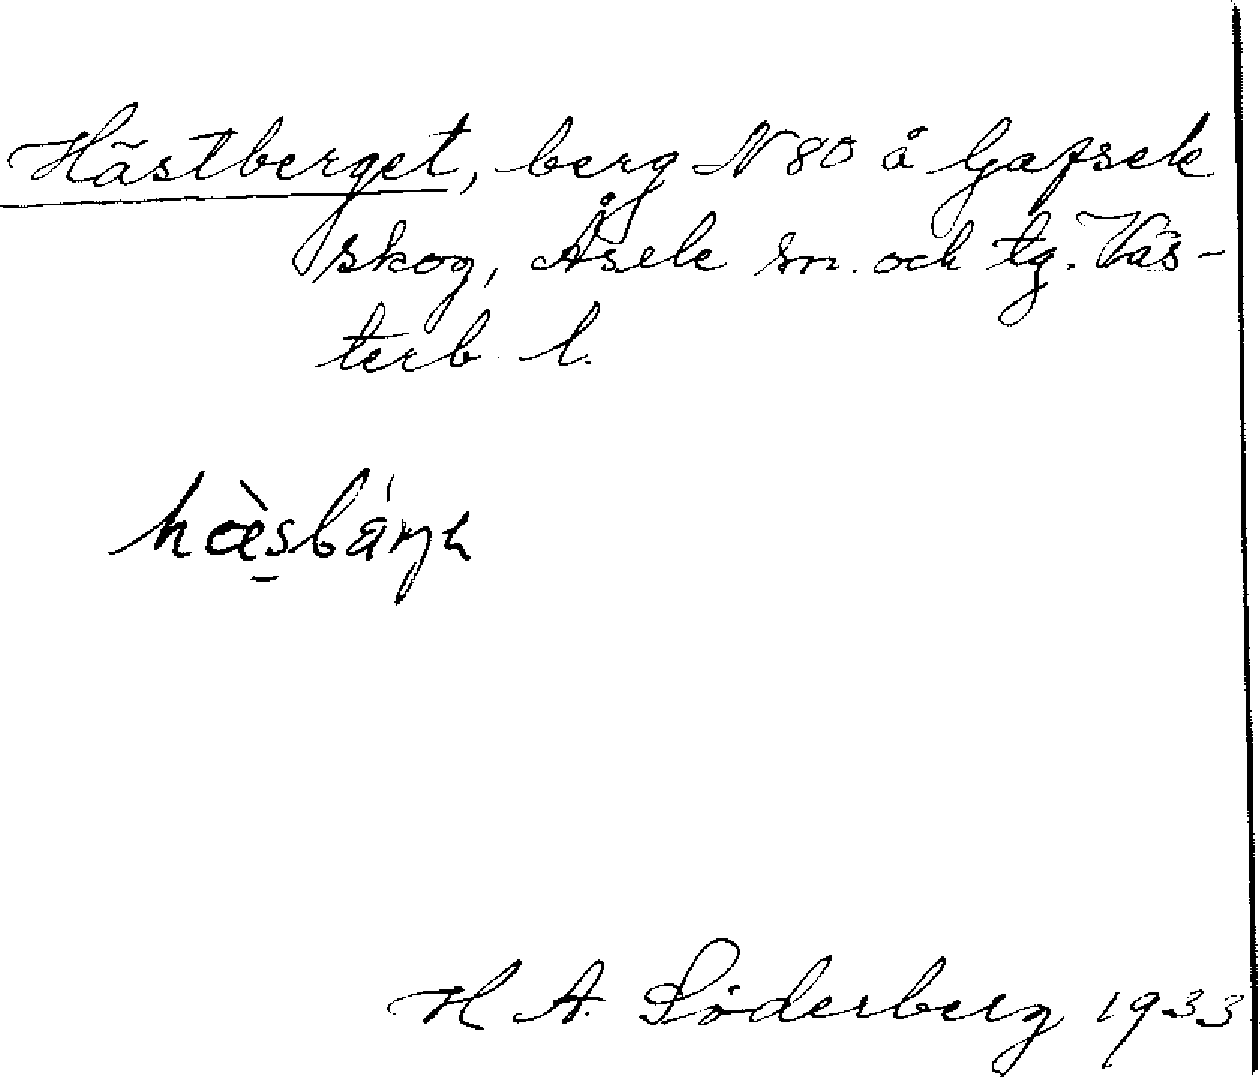 Hästberget, berg N 80 å Gafsele
skog, Åsele sn. och tg. Väs-
terb. l.
H A. Söderberg 1933